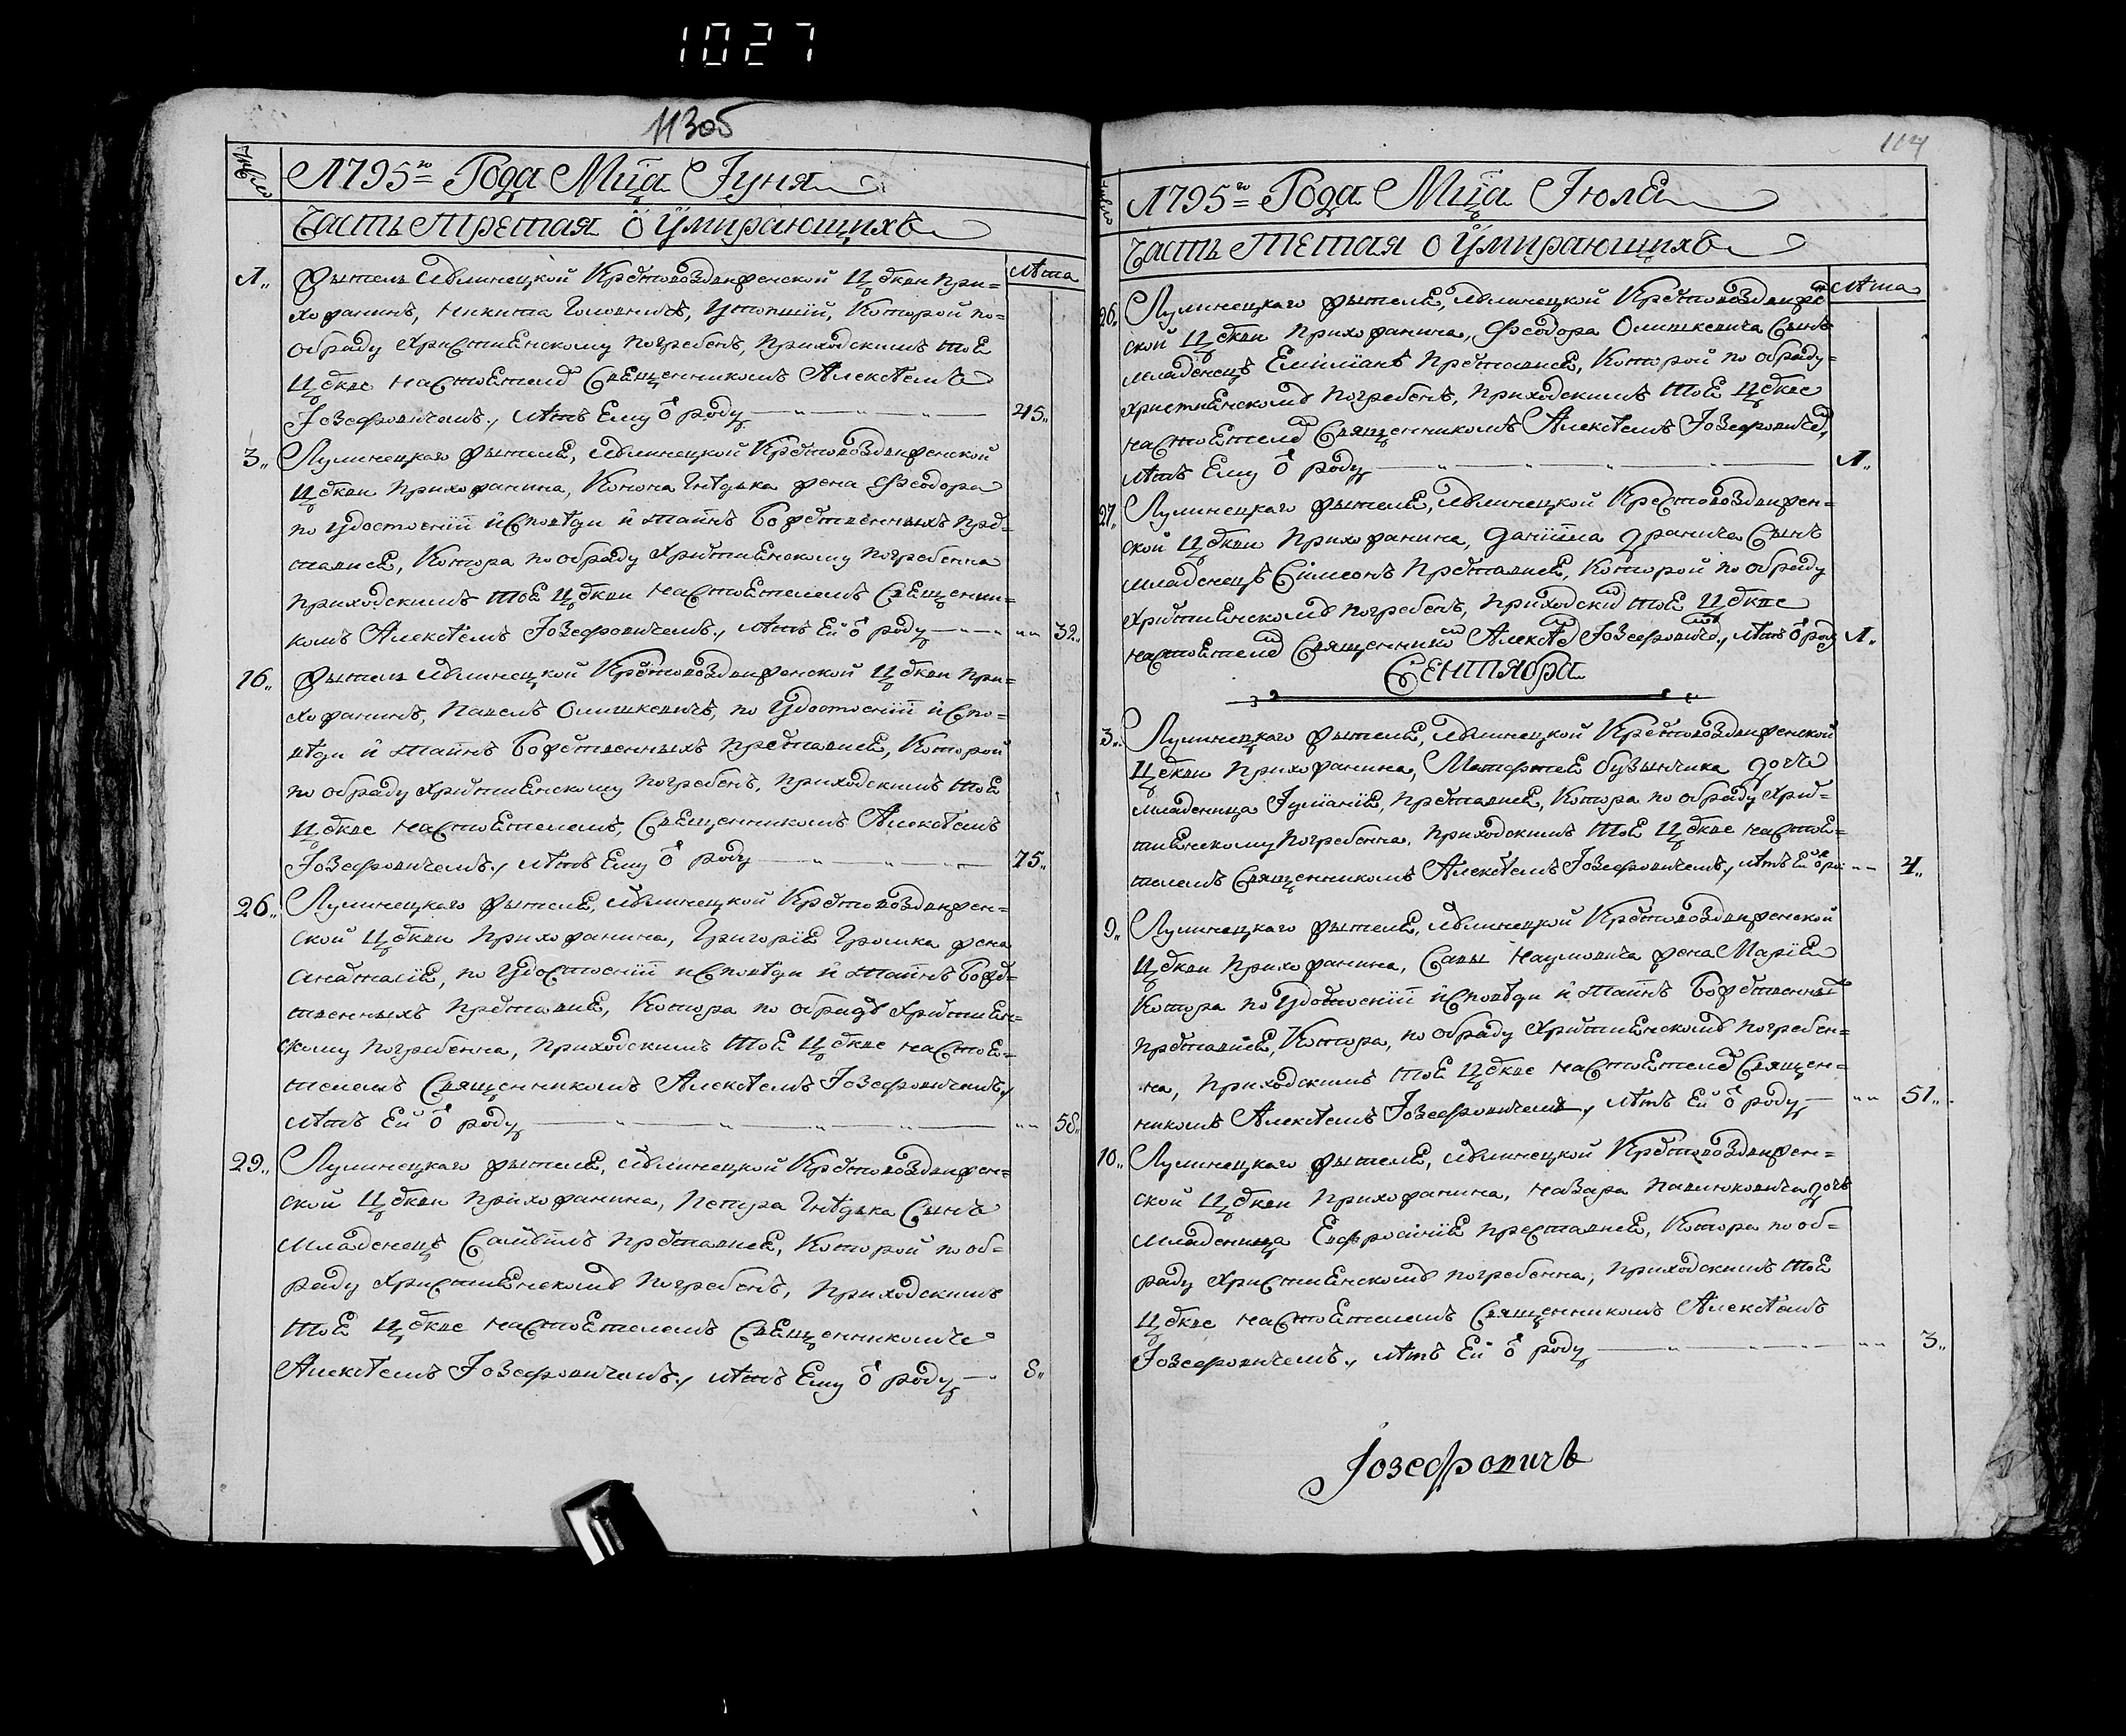 1027
113об
Число
1795го Года Мца Іуня
Часть Третая ѿ Умирающихъ
Лѣта
1„ Житель Лѣлинецкой Крестовоздвиженской Цркви При=
хожанинъ, Никита Головничъ, Утопшій, Которой по=
Обряду Християнскому Погребенъ, Приходскимъ тоя
Цркве настоятелемъ Священникомъ Алексѣемъ
Іозефовичемъ, лѣтъ Ему ѿ роду 45„
3„ Лулинецкаго жителя, Лѣлинецкой Крестовоздвиженской
Цркви Прихожанина, Конона Гнѣдька жена Феодора
по Удостоеніи исповѣди и таинъ Божественныхъ Пред=
ставися, Котора по обряду Християнскому погребенна
Приходскимъ тоя Цркви настоятелемъ Священни=
комъ Алексѣемъ Іозефовичемъ, лѣтъ Ей ѿ роду 32„
16„ Житель Лѣлинецкой Крестовоздвиженской Цркви При=
хожанинъ, Павелъ Олишкевичъ, по Удостоеніи испо=
вѣди и таинъ Божественныхъ Преставися, Которой
по обряду Християнскому погребенъ, Приходскимъ тоя
Цркве настоятелемъ, Священникомъ Алексѣемъ
Іозефовичемъ, лѣтъ Ему ѿ роду 75„
26„ Лулинецкаго жителя, Лѣлинецкой Крестовоздвижен=
ской Цркви Прихожанина, Григорія Громка жена
Анастасія, по Удостоеніи исповѣди и таинъ Божес=
твенныхъ Преставися, Котора по обряду Християн=
скому погребенна, Приходскимъ тоя Цркве настоя=
телемъ Священникомъ Алексѣемъ Іозефовичемъ,
лѣтъ Ей ѿ роду 58„
29„ Лулинецкаго жителя, Лѣлинецкой Крестовоздвижен=
ской Цркви Прихожанина, Петра Гнѣдька Сынъ
Младенецъ Самуилъ Преставися, Которой по об=
ряду Християнскому Погребенъ, Приходскимъ
тоя Цркве настоятелемъ Священникомъ
Алексѣемъ Іозефовичемъ, лѣтъ Ему ѿ роду 8„
114
Число
1795го Года Мца Іюля
Часть Тетая ѿ Умирающихъ
Лѣта
26„ Лулинецкаго жителя, Лѣлинецкой Крестовоздвижен
ской Цркви Прихожанина, Феодора Олишкевича Сынъ
младенецъ Емиліанъ Преставися, Которой по обряду=
Християнскому Погребенъ, Приходскимъ тоя Цркве
настоятелемъ Священникомъ Алексѣемъ Іозефовичем,
лѣтъ Ему ѿ роду 1„
27„ Лулинецкаго жителя, Лѣлинецкой Крестовоздвижен=
ской Цркви Прихожанина, Даніила Дранича Сынъ
младенецъ Симеонъ Преставися, Которой по обряду
Християнскому погребенъ, Приходским тоя Цркве
настоятелем Священником Алексѣем Іозефовичем, лѣтъ ѿ роду 1„
Сентября
3„ Лулинецкаго жителя, Лѣлинецкой Крестовоздвиженской
Цркви Прихожанина, Матфтея Бузынчика дочь
младеница Іуліанія, Преставися, Котора по обряду Хрис=
тиянскому погребенна, Приходскимъ тоя Цркве настоя=
телемъ Священникомъ Алексѣемъ Іозефовичемъ, лѣтъ Ей ѿ ро 4„
9„ Лулинецкаго жителя, Лѣлинецкой Крестовоздвиженской
Цркви Прихожанина, Савы Наумовича жена Марія
Котора по Удостоеніи исповѣди и таинъ Божественных
Преставися, Котора, по обряду Християнскому погребен=
на, Приходскимъ тоя Цркве настоятелем Священ=
никомъ Алексѣемъ Іозефовичемъ, лѣтъ Ей ѿ роду 51„
10„ Лулинецкаго жителя, Лѣлинецкой Крестовоздвижен=
ской Цркви Прихожанина, Назара Павлюковича дочь
младеница Евфросинія преставися, Котора по об=
ряду Християнскому погребенна, Приходскимъ тоя
Цркве настоятелемъ Священникомъ Алексѣемъ
Іозефовичемъ, лѣтъ Ей ѿ роду 3„
Іозефовичъ